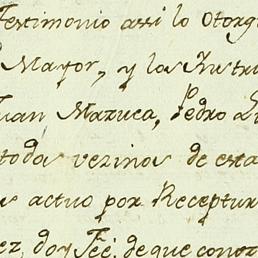 Testimonio assi lo otorg
Mayor, y los Instru
Juan Mazuca, Pedro
todos vezinos de esta
s actuo por Receptur
ez, doy Feé, de que conoz